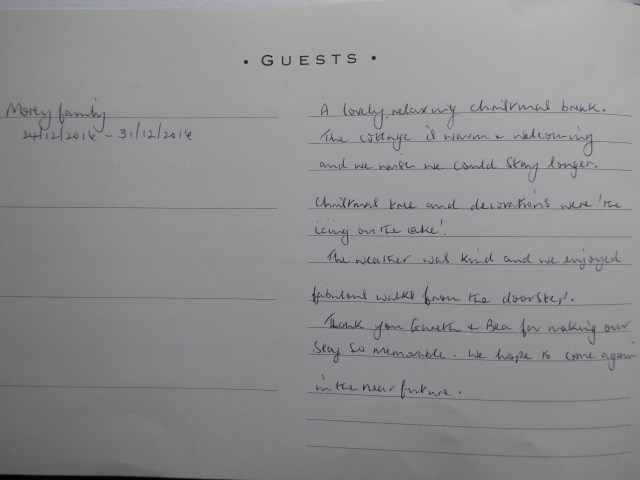 • GUESTS •
Morey family
24/12/2016 - 31/12/2016
A lovely, relaxing Christmas break.
The cottage is warm + welcoming
and we wish we could stay longer.
Christmas tree and decorations were 'the
icing on the cake'.
The weather was kind and we enjoyed
fabulous walks from the doorstep.
Thank you Gareth + Bea for making our
stay so memorable. We hope to come again
in the near future.